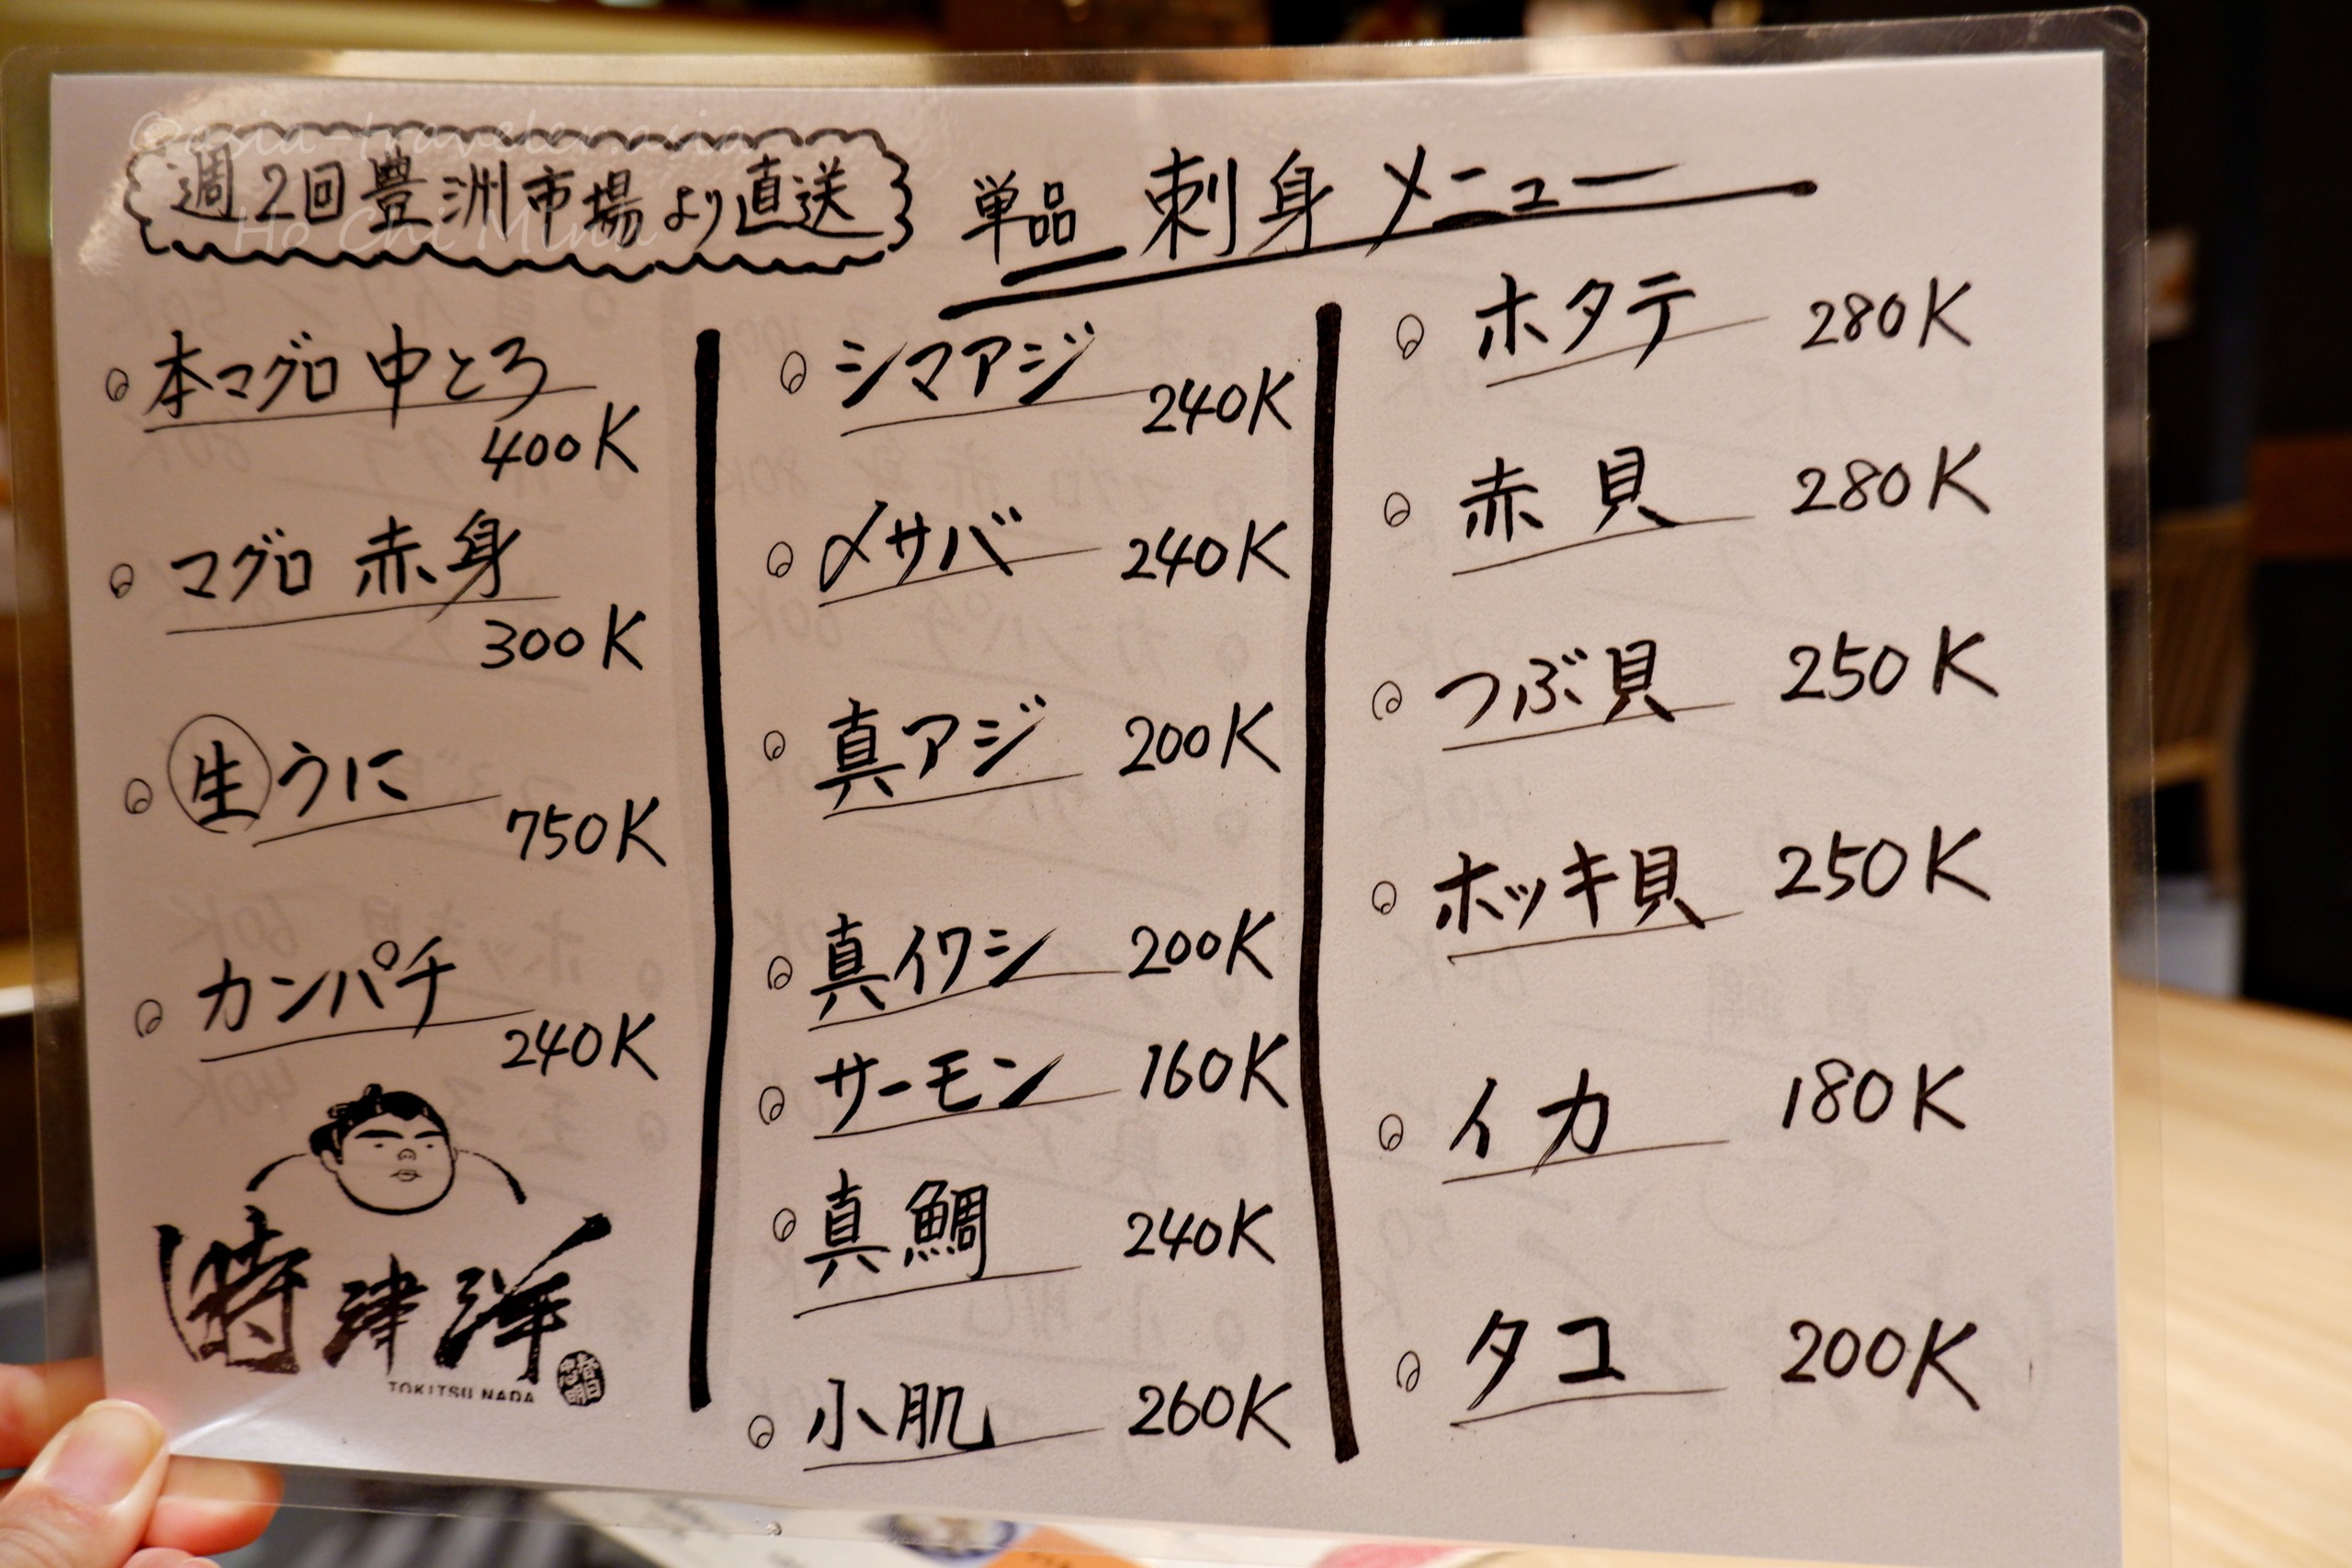 ©asia-traveler.asia
Ho Chi Minh
週2回豊洲市場より直送
単品 刺身メニュー
本マグロ 中とろ
400K
マグロ 赤身
300K
生うに
750K
カンパチ
240K
時津洋
TOKITSU NADA
シマアジ
240K
〆サバ 240K
真アジ 200K
真イワシ 200K
サーモン 160K
真鯛 240K
小肌 260K
ホタテ 280K
赤貝 280K
つぶ貝 250K
ホッキ貝 250K
イカ 180K
タコ 200K